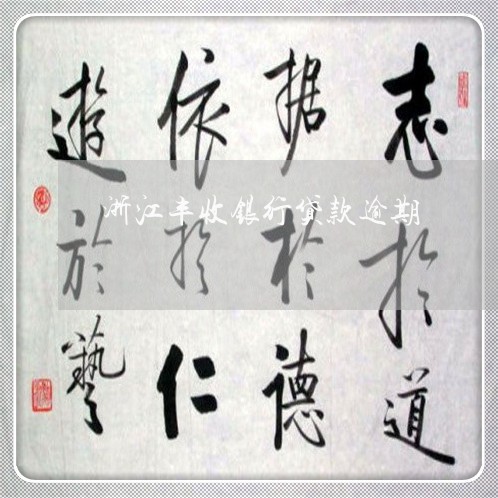 志於道
据於德
依於仁
遊於藝
浙江丰收银行贷款逾期